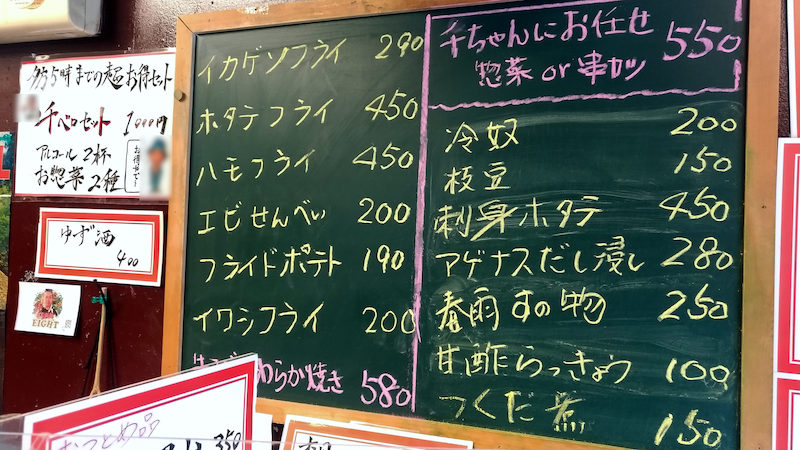 夕方5時までの超お得セット
千ベロセット 1000円
アルコール2杯
お惣菜2種
ゆず酒
400
EIGHT
イカゲソフライ 290
ホタテフライ 450
ハモフライ 450
エビせんべい 200
フライドポテト 190
イワシフライ 200
わらか焼き 580
千ちゃんにお任せ
惣菜 or 串カツ 550
冷奴 200
枝豆 150
刺身ホタテ 450
アゲナスだし浸し 280
春雨すの物 250
甘酢らっきょう 100
つくだ煮 150
おつとめ品
350